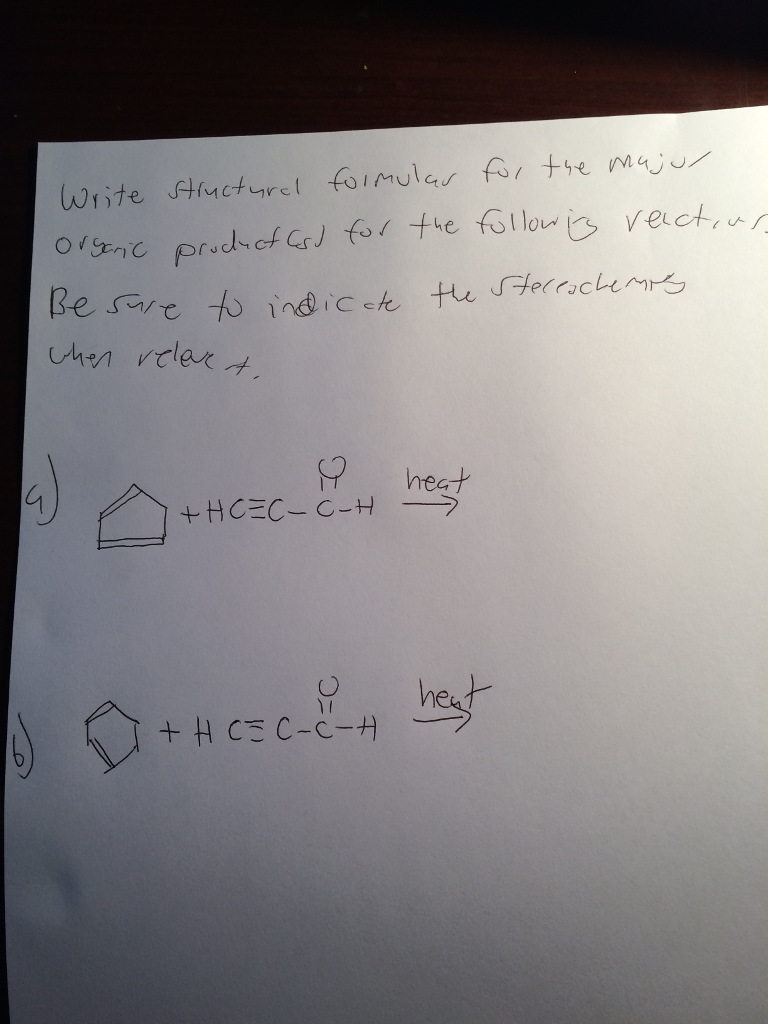 Write structural formulas for the major
organic product(s) for the following reactions
Be sure to indicate the stereochemistry
when relevant.
a) + HC≡C-C-H heat
O
b) + HC≡C-C-H heat
O